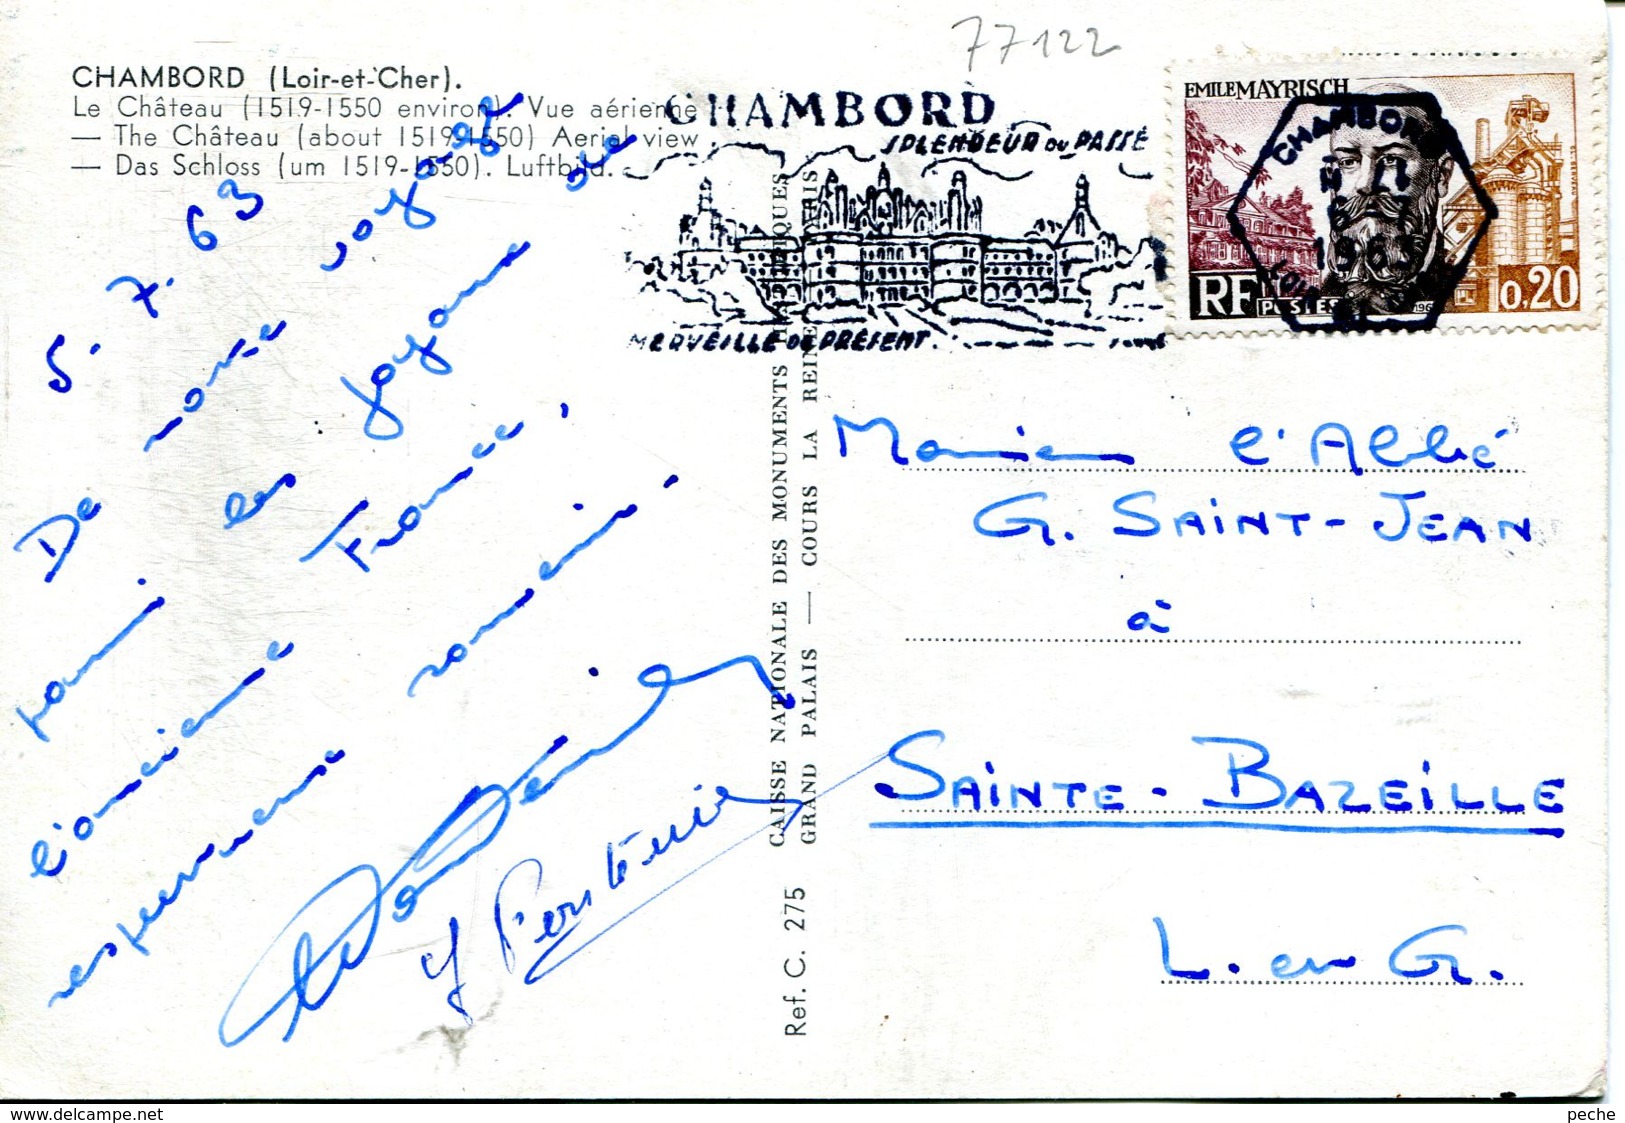 77122
CHAMBORD (Loir-et-Cher).
Le Château (1519-1550 environ). Vue aérienne
— The Château (about 1519-1550) Aerial view
— Das Schloss (um 1519-1550). Luftbild.
CHAMBORD
SPLENDEUR DU PASSÉ
MERVEILLE DU PRÉSENT.
EMILE MAYRISCH
RF POSTES
0,20
CHAMBORD
1963
5. 7. 63
De notre voyage
parmi les joyaux de
l'ancienne France,
respectueux souvenir.
Y Pontenie
CAISSE NATIONALE DES MONUMENTS HISTORIQUES
GRAND PALAIS — COURS LA REINE PARIS
Ref. C. 275
Monsieur l'Abbé
G. SAINT-JEAN
à
SAINTE-BAZEILLE
L. en G.
peche